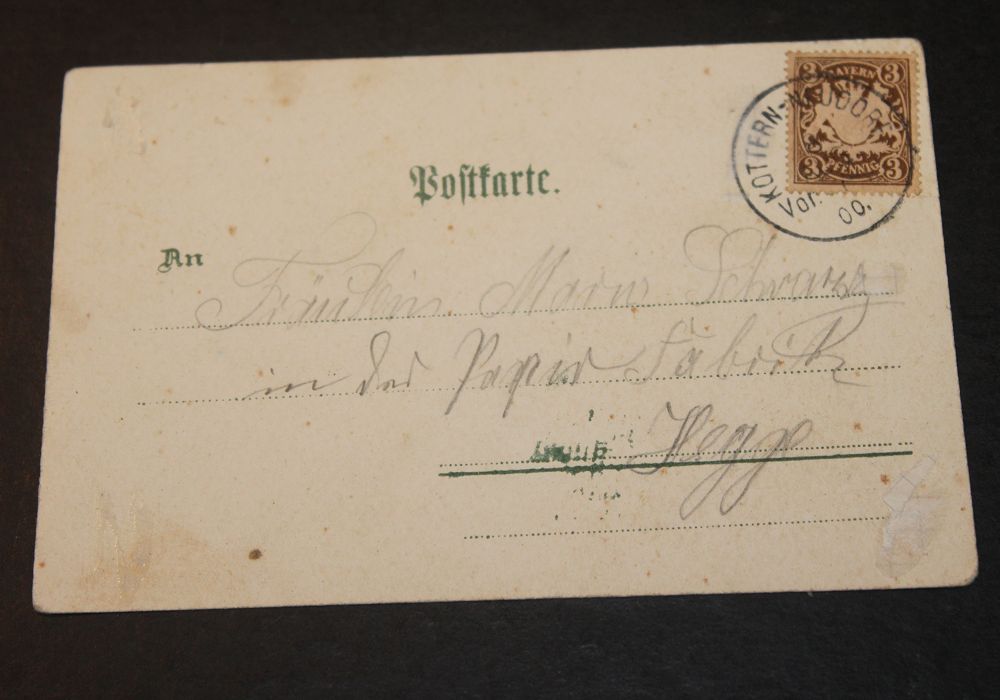 3 BAYERN 3
3 PFENNIG 3
KOTTERN-NEUDORF
Vor.
00.
Postkarte.
An
Fräulein Marie Schwarz
in der Papier Fabrik
Hegge